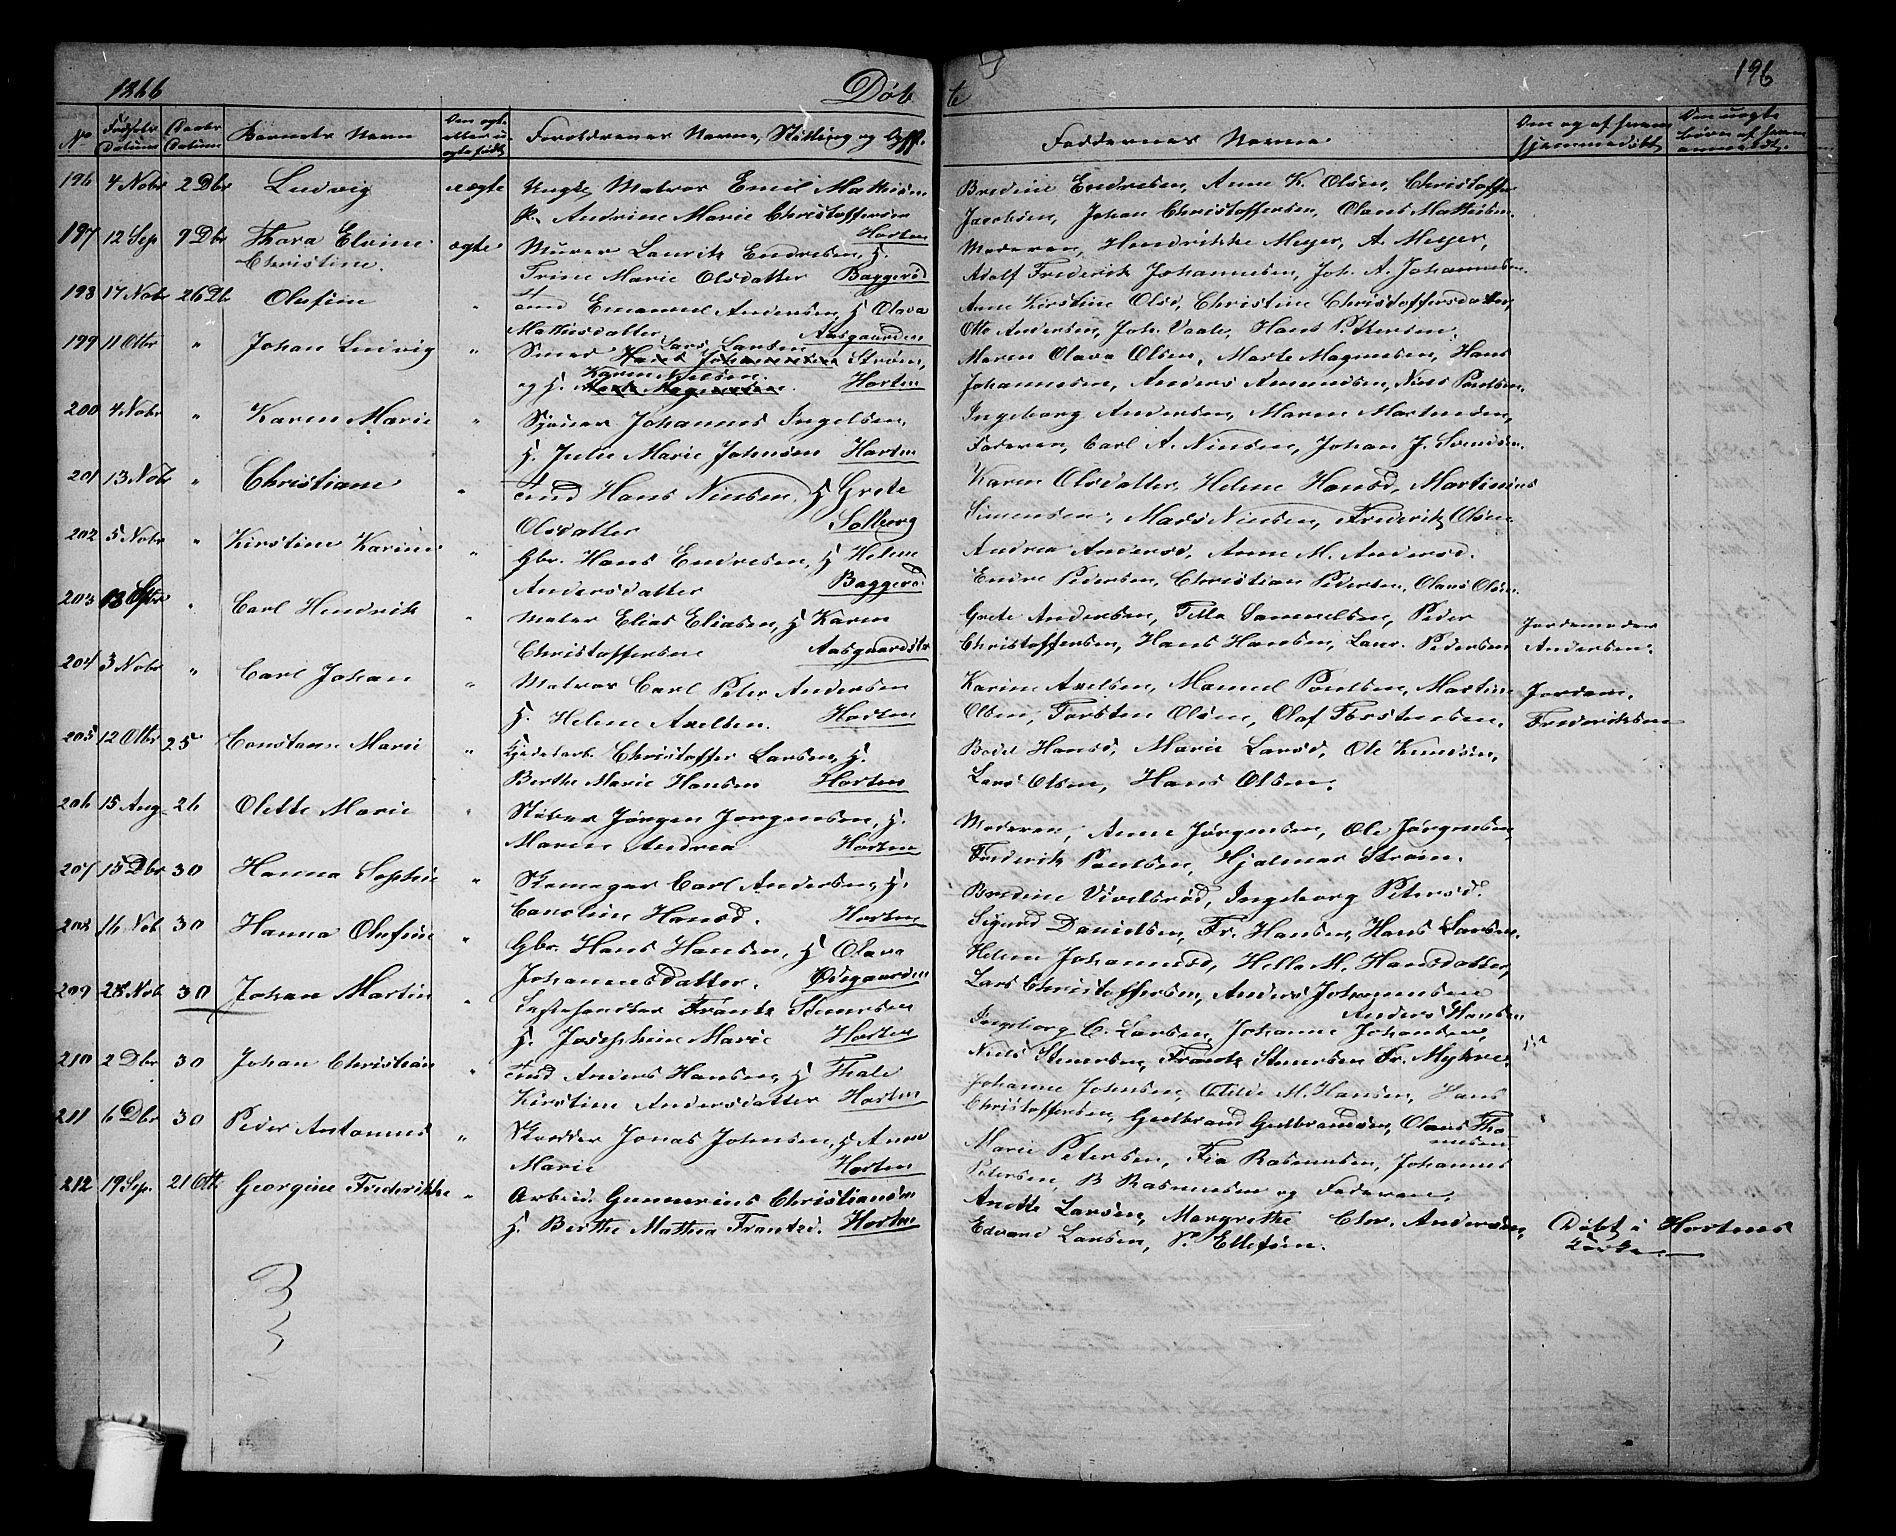 1866
Døb
te
196
No
Fødsels Datum
Daabs Datum
Barnets Navn
Om ægte eller uægte født
Forældrenes Navne, Stilling og
Faddernes Navne
Om og af hvem hjemmedøbt
Om uægte børn af hvem anmeldt
196 4 Nobr 2 Dbr Ludvig uægte Ungk. Matros Emil Mathisen
P. Andrine Marie Christoffersen Horten
Bredine Endresen, Anne K. Olsen, Christoffer
Jacobsen, Johan Christoffersen, Olaus Mathisen
197 12 Sep 9 Dbr Thora Elvine Christine. ægte Murer Laurits Endresen, H.
Trine Marie Olsdatter Baggerød
Moderen, Hendrikke Meyer, A. Meyer,
Adolf Frederik Johannesen, Joh. A. Johannesen
198 17 Nobr 26 Db Olufine " Tmd Emanuel Andersen, H Olava
Mathisdatter Aasgaarden
Anne Kirstine Olsd, Christine Christoffersdatter,
Otto Andersen, Joh. Vaale, Hans Pettersen.
199 11 Otbr " Johan Ludvig " Smed Lars Larsen Hans Johannesen Strøm,
og H. Karen Nilsen. Horten
Maren Olava Olsen, Marte Magnusen, Hans
Johannesen, Anders Amundsen, Niels Poulsen
200 4 Nobr " Karen Marie " Sjømar Johannes Ingelsen,
H. Julie Marie Johnsen Horten
Ingeborg Andersen, Maren Mortensen,
Faderen, Carl A. Nielsen, Johan J. Svendsen
201 13 Nobr " Christiane " Tmd Hans Nielsen, H Grete
Olsdatter Solberg
Karen Olsdatter, Helene Hansd, Martinius
Simensen, Mads Nielsen, Frederik Olsen
202 5 Nobr " Kirstine Karine " Gbr. Hans Endresen, H Helene
Andersdatter Baggerød
Andrea Andersd, Anne M. Andersd.
Endre Pedersen, Christian Pedersen, Olaus Olsen
203 " Carl Hendrik " Maler Elias Eliasen, H Karen
Christoffersen Aasgaardstr
Grete Andersen, Tilla Samuelsen, Peder
Christoffersen, Hans Hansen, Laur. Pedersen
Jordemoder
Andersen.
204 3 Nobr " Carl Johan " Matros Carl Peter Andersen
H. Helene Axelsen. Horten
Karine Axelsen, Manuel Poulsen, Martin
Olsen, Torsten Olsen, Olaf Torstensen.
Jordem.
Frederiksen
205 12 Otbr 25 Constanse Marie " Christoffer Larsen, H.
Berthe Marie Hansen Horten
Bodel Hansd, Marie Larsd, Ole Knudsen,
Lars Olsen, Hans Olsen.
206 15 Aug 26 Olette Marie " Støber Jørgen Jørgensen, H.
Maren Andrea Horten
Moderen, Anne Jørgensen, Ole Jørgensen
Frederik Poulsen, Hjalmar Strøm.
207 15 Dbr 30 Hanna Sophie " Skomager Carl Andersen, H.
Karstine Hansd. Horten
Bredine Vivelsrød, Ingeborg Petersd.
Sigurd Danielsen, Fr. Hansen, Hans Larsen.
208 16 Nob 30 Hanna Olufine " Gbr. Hans Hansen, H Olava
Johannesdatter. Ødegaarden
Helene Johannesd, Hella M. Hansdatter,
Lars Christoffersen, Anders Johannesen
Anders Hansen
209 28 Nob 30 Johan Martin " Frantz Stenersen
H. Josephine Marie Horten
Ingeborg C. Larsen, Johanne Johansen,
Niels Stenersen, Frantz Stenersen Fr. Myhre
210 2 Dbr 30 Johan Christian " Tmd Anders Hansen, H Thale
Kirstine Andersdatter Horten
Johanne Johnsen, Otilde M. Hansen, Hans
Christoffersen, Gulbrand Gulbrandsen, Olaus Thomesen
211 6 Dbr 30 Peder Antonius " Skrædder Jonas Johnsen, H Anne
Marie Horten
Marie Petersen, Fia Rasmusen, Johannes
Petersen, B Rasmusen og Faderen.
212 19 Sep. 21 Otb Georgine Frederikke " Arbeid. Gunnerius Christiansen
H. Berthe Mathea Frantsd. Horten
Anette Larsen, Margrethe Chr. Andersen,
Edvard Larsen, P. Ellefsen.
Døbt i Hortens
Kirke